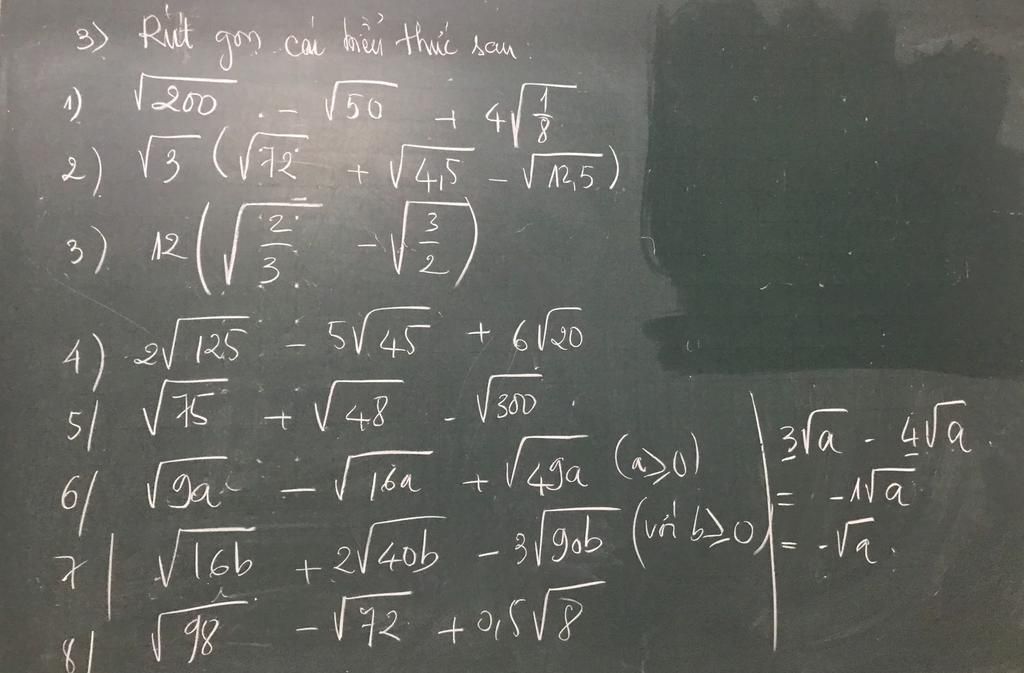 3) Rút gọn các biểu thức sau:
1) √200 - √50 + 4√(1/8)
2) √3 (√72 + √4,5 - √12,5)
3) 12 (√(2/3) - √(3/2))
4) 2√125 - 5√45 + 6√20
5/ √75 + √48 - √300
6/ √9a - √16a + √49a (a≥0)
7/ √16b + 2√40b - 3√90b (với b≥0)
8/ √98 - √72 + 0,5√8
3√a - 4√a
= -1√a
= -√a.